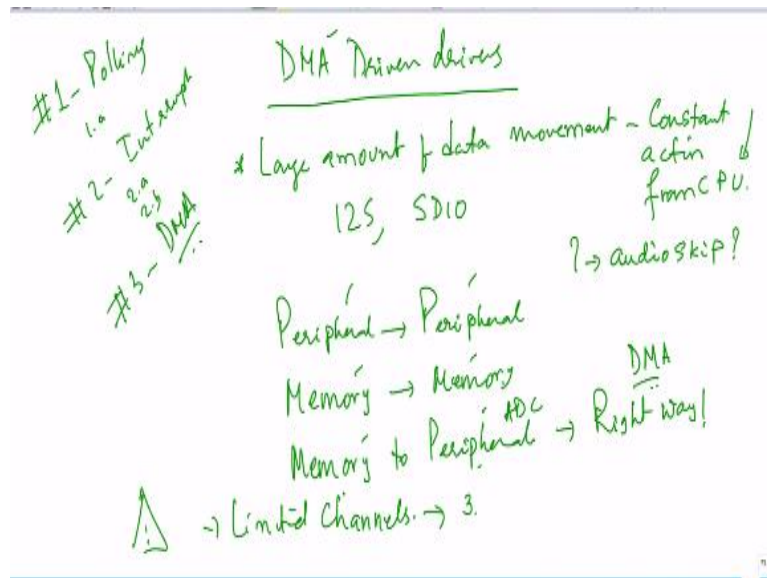 #1 - Polling
1.a
#2 - Interrupt
2.a
2.b
#3 - DMA
DMA Driven drivers
* Large amount of data movement - Constant
action
from CPU.
I2S, SDIO
? → audio skip?
Peripheral → Peripheral
Memory → Memory
Memory to Peripheral ADC → Right way!
DMA
! → Limited Channels. → 3.